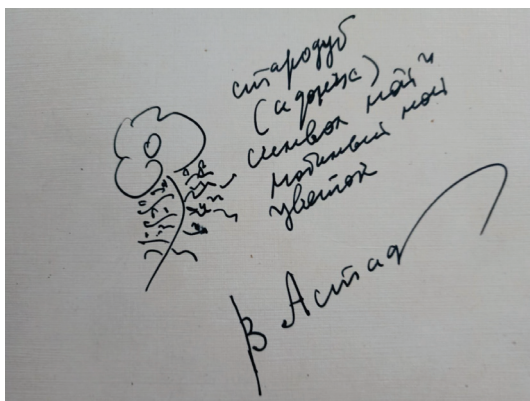 стародуб
(адонис)
символ мой и
любимый мой
цветок
В Астаф